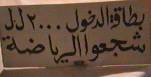 بطاقة الدخول ٢٠٠٠ ل.ل
شجعوا الرياضة